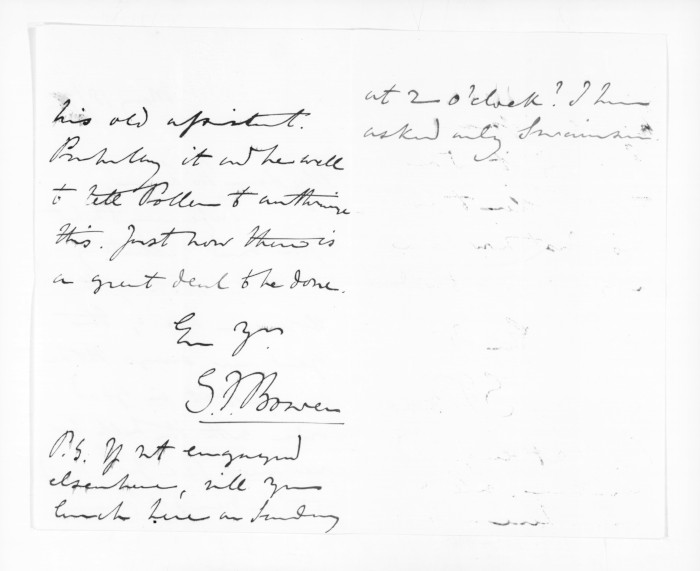 his old assistant.
Probably it wd be well
to tell Pollen to authorize
this. Just now there is
a great deal to be done.
Ev Yrs
G.F. Bowen
P.S. If not engaged
elsewhere, will you
lunch here on Sunday
at 2 o'clock? I have
asked only Swainson